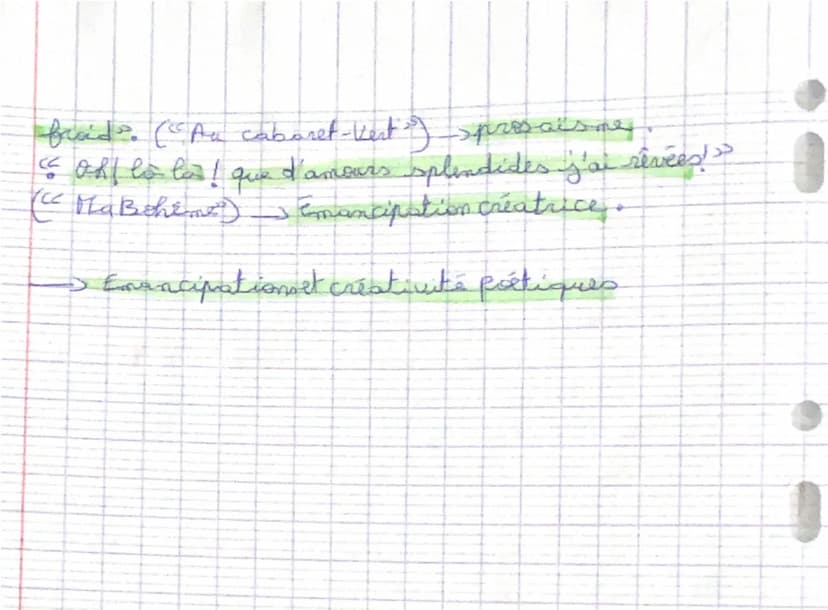 froid ». (« Au cabaret-Vert ») → prosaïsme.
« Oh! là là! que d'amours splendides j'ai rêvées! »
(« Ma Bohême ») → Emancipation créatrice.
→ Emancipation et créativité poétiques